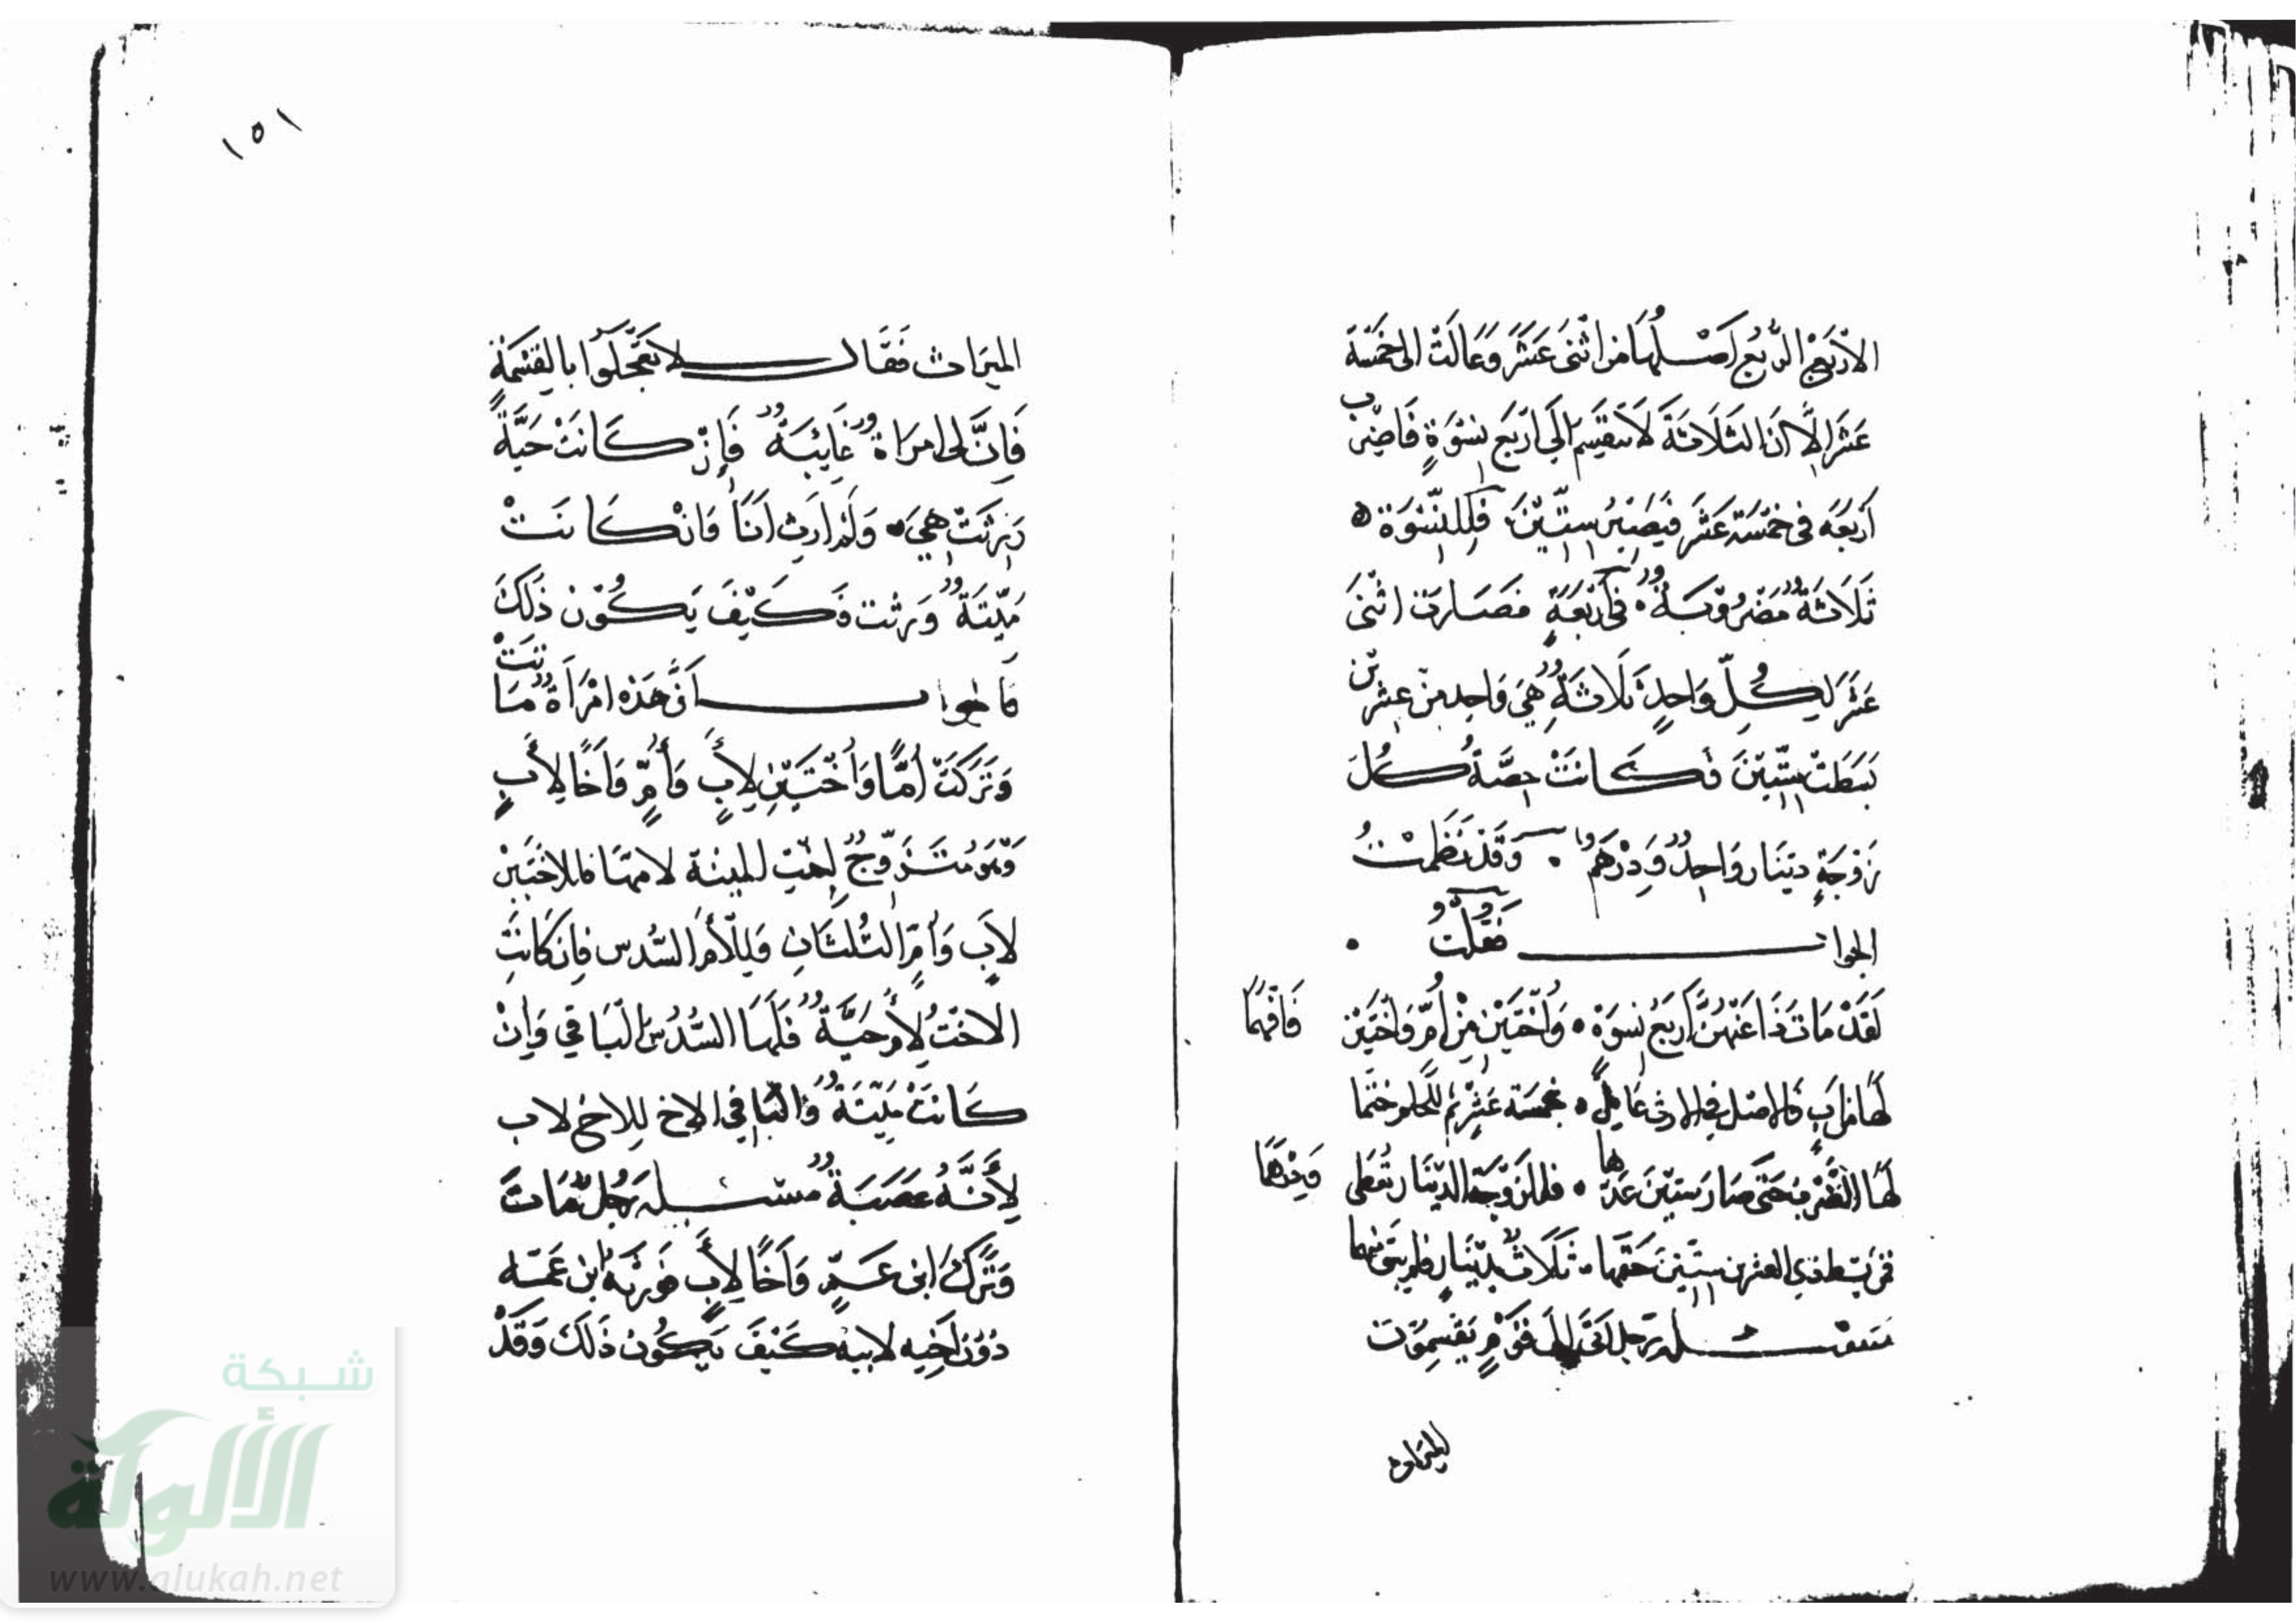 الأربع الربع أصلها من اثنى عشر وعالت الى خمسة
عشر إلا أن الثلاثة لا تنقسم على أربع نسوة فاضرب
أربعه في خمسة عشر فيصير ستين فللنسوة
ثلاثة مضروبة في أربعة فصارت اثنى
عشر لكل واحدة ثلاثة هي واحد من عشرين
بسطت ستين فكانت حصة كل
زوجة دينار واحد ودرهم وقد نظمت
الجواب فقلت
لقد مات ذا عنهن أربع نسوة وأختين من أم وأختين فافهما
لها من أب فالاصل في الارث عايل بخمسة عشر
لها الضرب حتى صار ستين عدها فللزوجة الدينار تعطى ودرهما
العشرين ستين حقها ثلاث بدينار
مسئلة رجل اتى الى قوم يقسمون
الميراث
١٥١
الميراث فقال لا تعجلوا بالقسمة
فإن لى امراة غايبة فإن كانت حية
ورثت هي ولم ارث أنا وان كانت
ميتة ورثت فكيف يكون ذلك
فالجواب أن هذه امرأة ماتت
وتركت أما وأختين لأب وأم وأخا لأب
وهو متزوج بأخت الميتة لامها فللاختين
لاب وأم الثلثان وللأم السدس فإن كانت
الاخت لأم حية فلها السدس الباقي وإن
كانت ميتة والباقي الاخ للاخ لاب
لأنه عصبة مسئلة رجل مات
وترك ابن عم وأخا لأب فورثه ابن عمه
دون أخيه لابيه كيف يكون ذلك وقد
شبكة
الألوكة
www.alukah.net